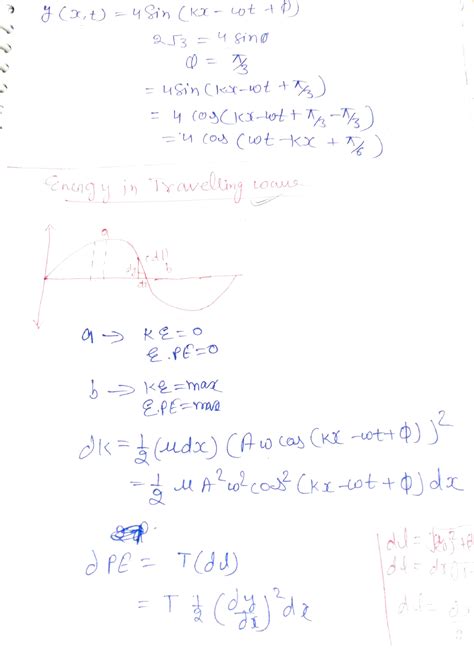 y(x,t) = 4 sin (kx - ωt + φ)
2√3 = 4 sinφ
φ = π/3
= 4 sin (kx - ωt + π/3)
= 4 cos (kx - ωt + π/3 - π/3)
= 4 cos (ωt - kx + π/6)
Energy in Travelling wave
a
dy
dl
b
dx
a → KE = 0
E.PE = 0
b → KE = max
E.PE = max
dK = 1/2 (μdx) (Aω cos (kx - ωt + φ))²
= 1/2 μA²ω² cos² (kx - ωt + φ) dx
dPE = T(dl)
= T 1/2 (dy/dx)² dx
dl =
dl = dx
dl =